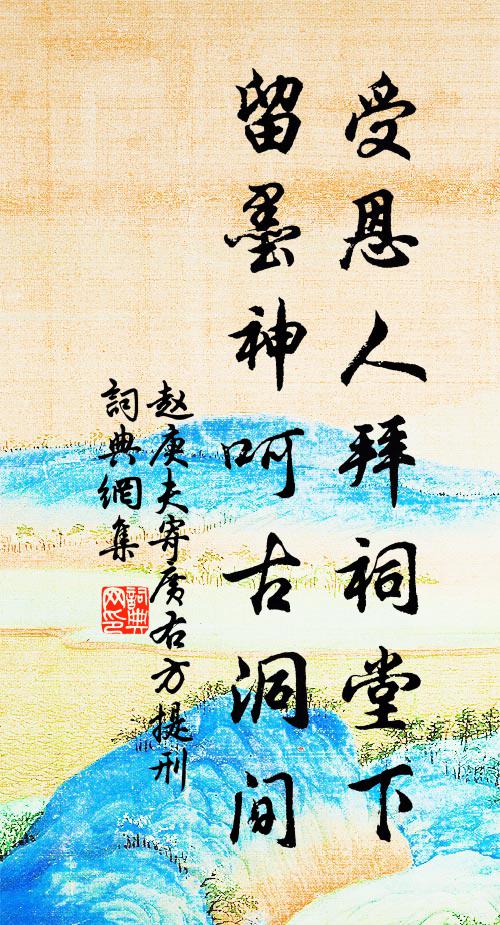 受恩人拜祠堂下
留墨神呵古洞间
赵庚夫寄广右方提刑
詞典網集
詞典网印